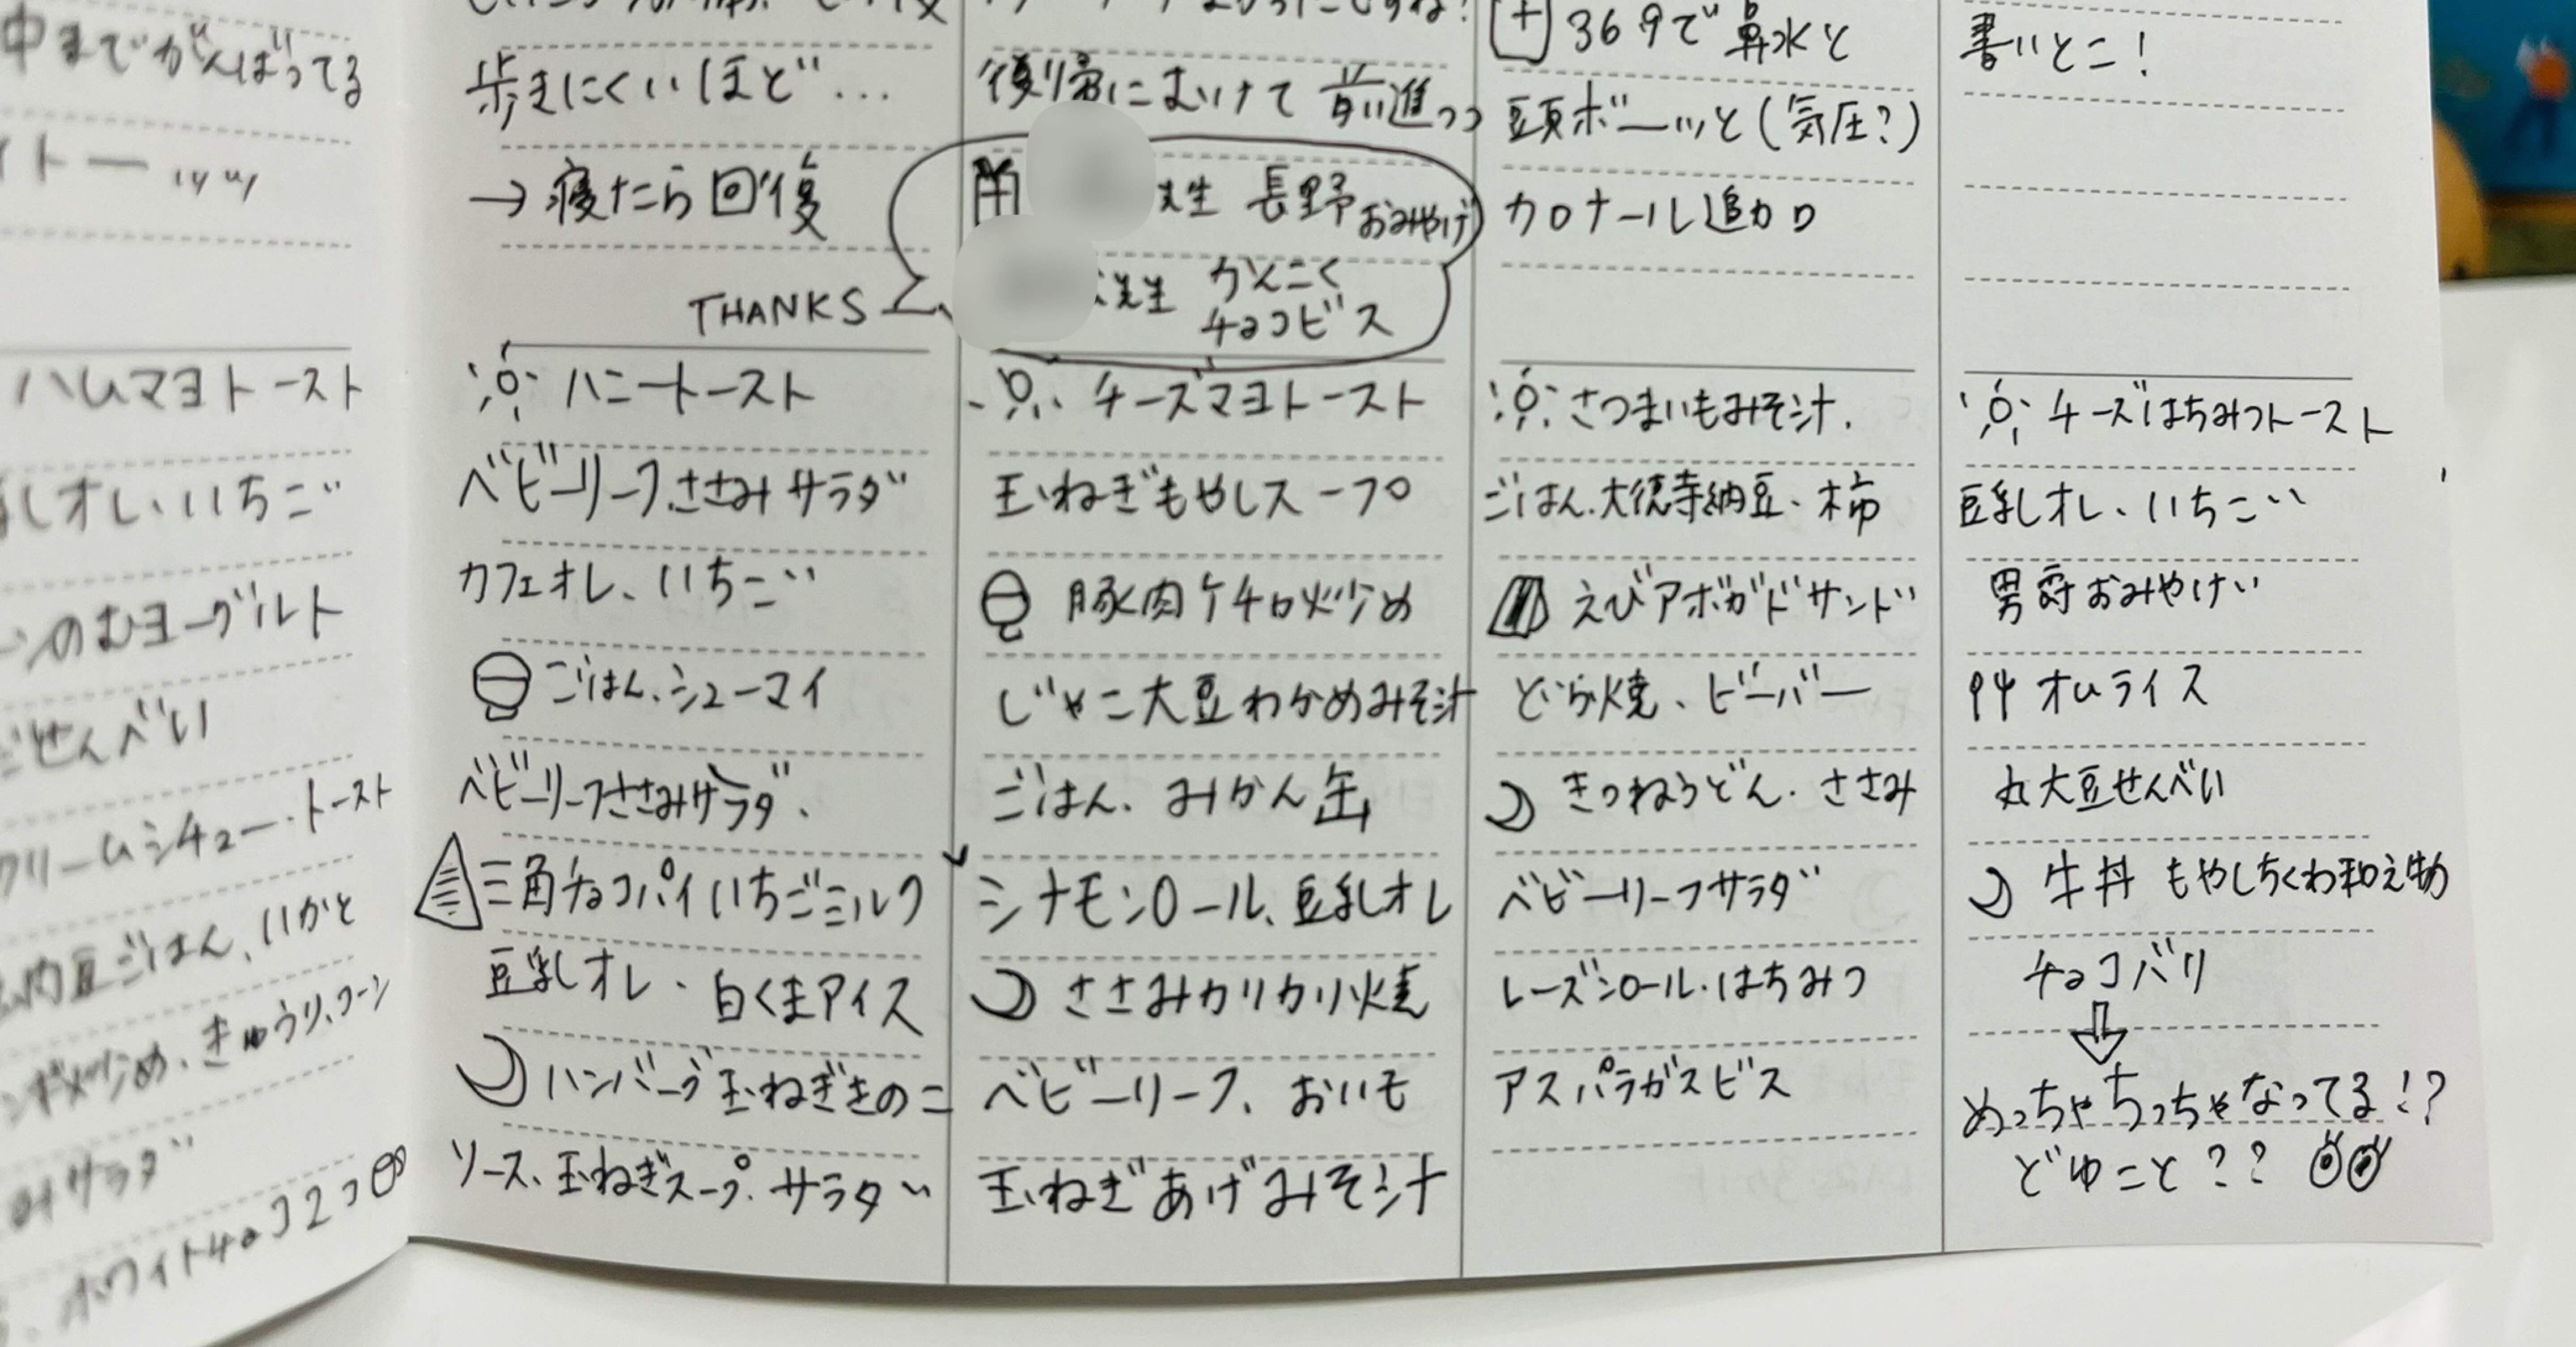 中までがんばってる
イトー
ハムマヨトースト
乳しオレ、いちご
のむヨーグルト
せんべい
クリームシチュー・トースト
納豆ごはん、いかと
炒め、きゅうり、コーン
サラダ
ホワイトチョコ2コ
歩きにくいほど…
→寝たら回復
THANKS
ハニートースト
ベビーリーフ、ささみサラダ
カフェオレ、いちご
ごはん、シューマイ
ベビーリーフささみサラダ、
三角チョコパイいちごミルク
豆乳しオレ、白くまアイス
ハンバーグ玉ねぎきのこ
ソース、玉ねぎスープ、サラダ
復帰にむけて前進っっ
先生 長野おみやげ
先生 かんこく
チョコビス
チーズマヨトースト
玉ねぎもやしスープ
豚肉ケチャ炒め
じゃこ大豆わかめみそ汁
ごはん、みかん缶
シナモンロール、豆乳しオレ
ささみカリカリ焼
ベビーリーフ、おいも
玉ねぎあげみそ汁
+ 36.9で鼻水と
頭ボーッと(気圧?)
カロナール追加
さつまいもみそ汁.
ごはん、大徳寺納豆、柿
えびアボガドサンド
どら焼、ビーバー
きつねうどん、ささみ
ベビーリーフサラダ
レーズンロール、はちみつ
アスパラガスビス
書いとこ!
チーズはちみつトースト
豆乳しオレ、いちご
男爵おみやげ
オムライス
丸大豆せんべい
牛丼 もやしちくわ和え物
チョコバリ
めっちゃちっちゃなってる!?
どゆこと??